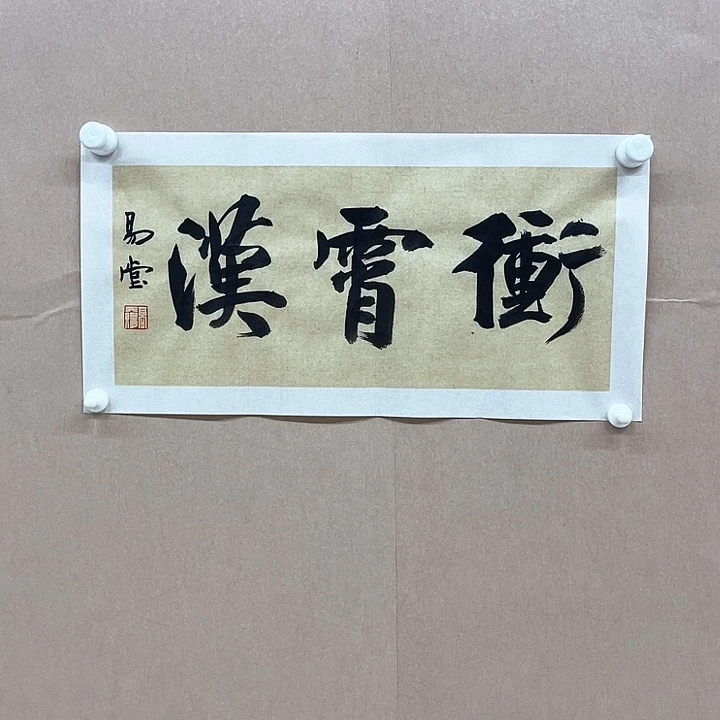 衝霄漢
易堂